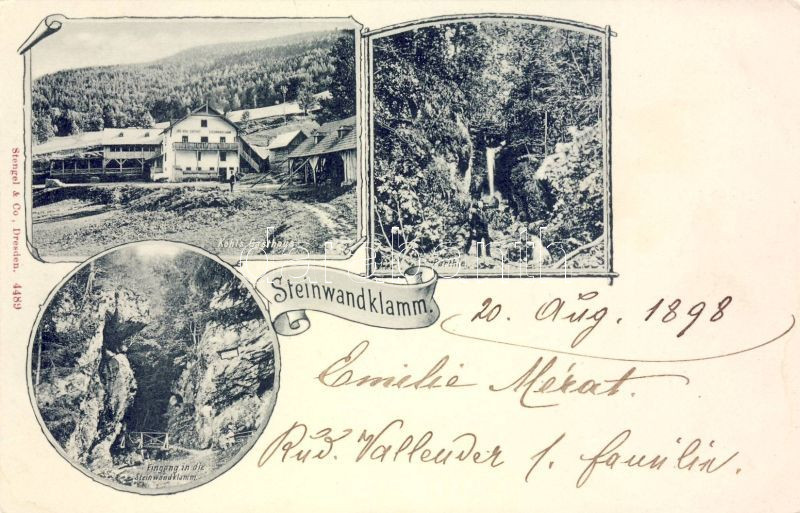 Kohls Gasthaus
Partie
Steinwandklamm.
Eingang in die
Steinwandklamm.
Stengel & Co., Dresden. 4489
20. Aug. 1898
Emilie Mérat.
Rud. Vallender & familie.